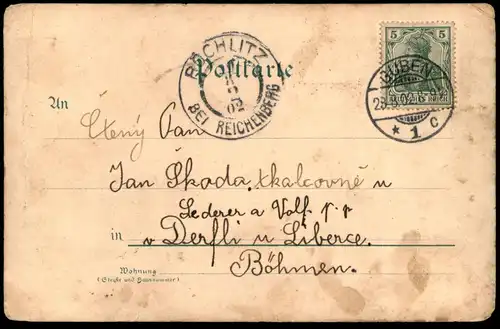 RÖCHLITZ
BEI REICHENBERG
02
Postkarte
5 5
GUBEN
* 1 c
An
Ctený Pan
Jan Škoda, tkalcovně u
Lederer a Volf
in v Dörfli u Liberce
Böhmen.
Wohnung
(Straße und Hausnummer)